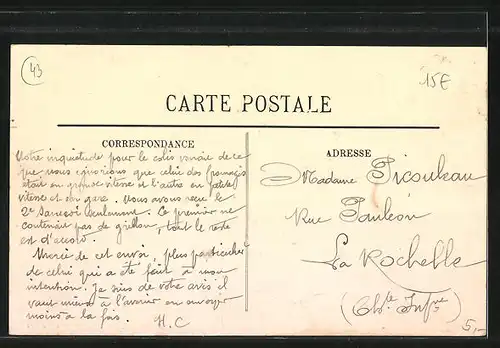 43
15E
CARTE POSTALE
CORRESPONDANCE
ADRESSE
Votre inquiétude pour le colis venait de ce
que nous croyions que celui des fromages
était en grande vitesse et l'autre en petite
vitesse et en gare. Nous avons reçu le
2e Samedi seulement. Ce premier ne
contenait pas de grillon, tout le reste
est d'accord.
Merci de cet envoi, plus particulier
de celui qui a été fait à mon
intention. Je suis de votre avis il
vaut mieux à l'avenir en envoyer
moins à la fois.
H.C
Madame
Rue
La Rochelle
(Chte Infre)
5,-